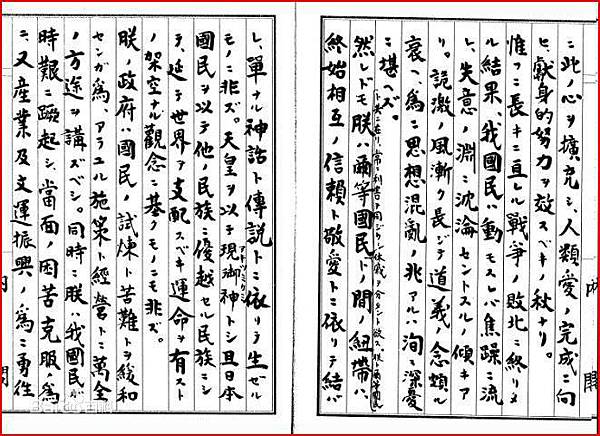 ニ此ノ心ヲ擴充シ人類愛ノ完成ニ向
ヒ、獻身的努力ヲ效スベキノ秋ナリ。
惟フニ長キニ亘レル戰爭ノ敗北ニ終リタ
ル結果、我國民ハ動モスレバ焦躁ニ流
レ、失意ノ淵ニ沈淪セントスルノ傾キア
リ。詭激ノ風漸ク長ジテ道義ノ念頗ル
衰ヘ、爲ニ思想混亂ノ兆アルハ洵ニ深憂
ニ堪ヘズ。
ト共ニ在リ、常ニ利害ヲ同ジウシ休戚ヲ分タント欲ス。朕ト爾等國民
然レドモ朕ハ爾等國民ト間ノ紐帶ハ、
終始相互ノ信賴ト敬愛トニ依リテ結バ
内閣
レ、單ナル神話ト傳說トニ依リテ生ゼル
モノニ非ズ。天皇ヲ以テ現御神トシ且日本
國民ヲ以テ他ノ民族ニ優越セル民族ニシ
テ、延テ世界ヲ支配スベキ運命ヲ有スト
ノ架空ナル觀念ニ基クモノニモ非ズ。
朕ノ政府ハ國民ノ試煉ト苦難トヲ緩和
センガ爲、アラユル施策ト經營トニ萬全
ノ方途ヲ講ズベシ。同時ニ朕ハ我國民ガ
時艱ニ蹶起シ、當面ノ困苦克服ノ爲
ニ、又產業及文運振興ノ爲ニ勇往
内閣